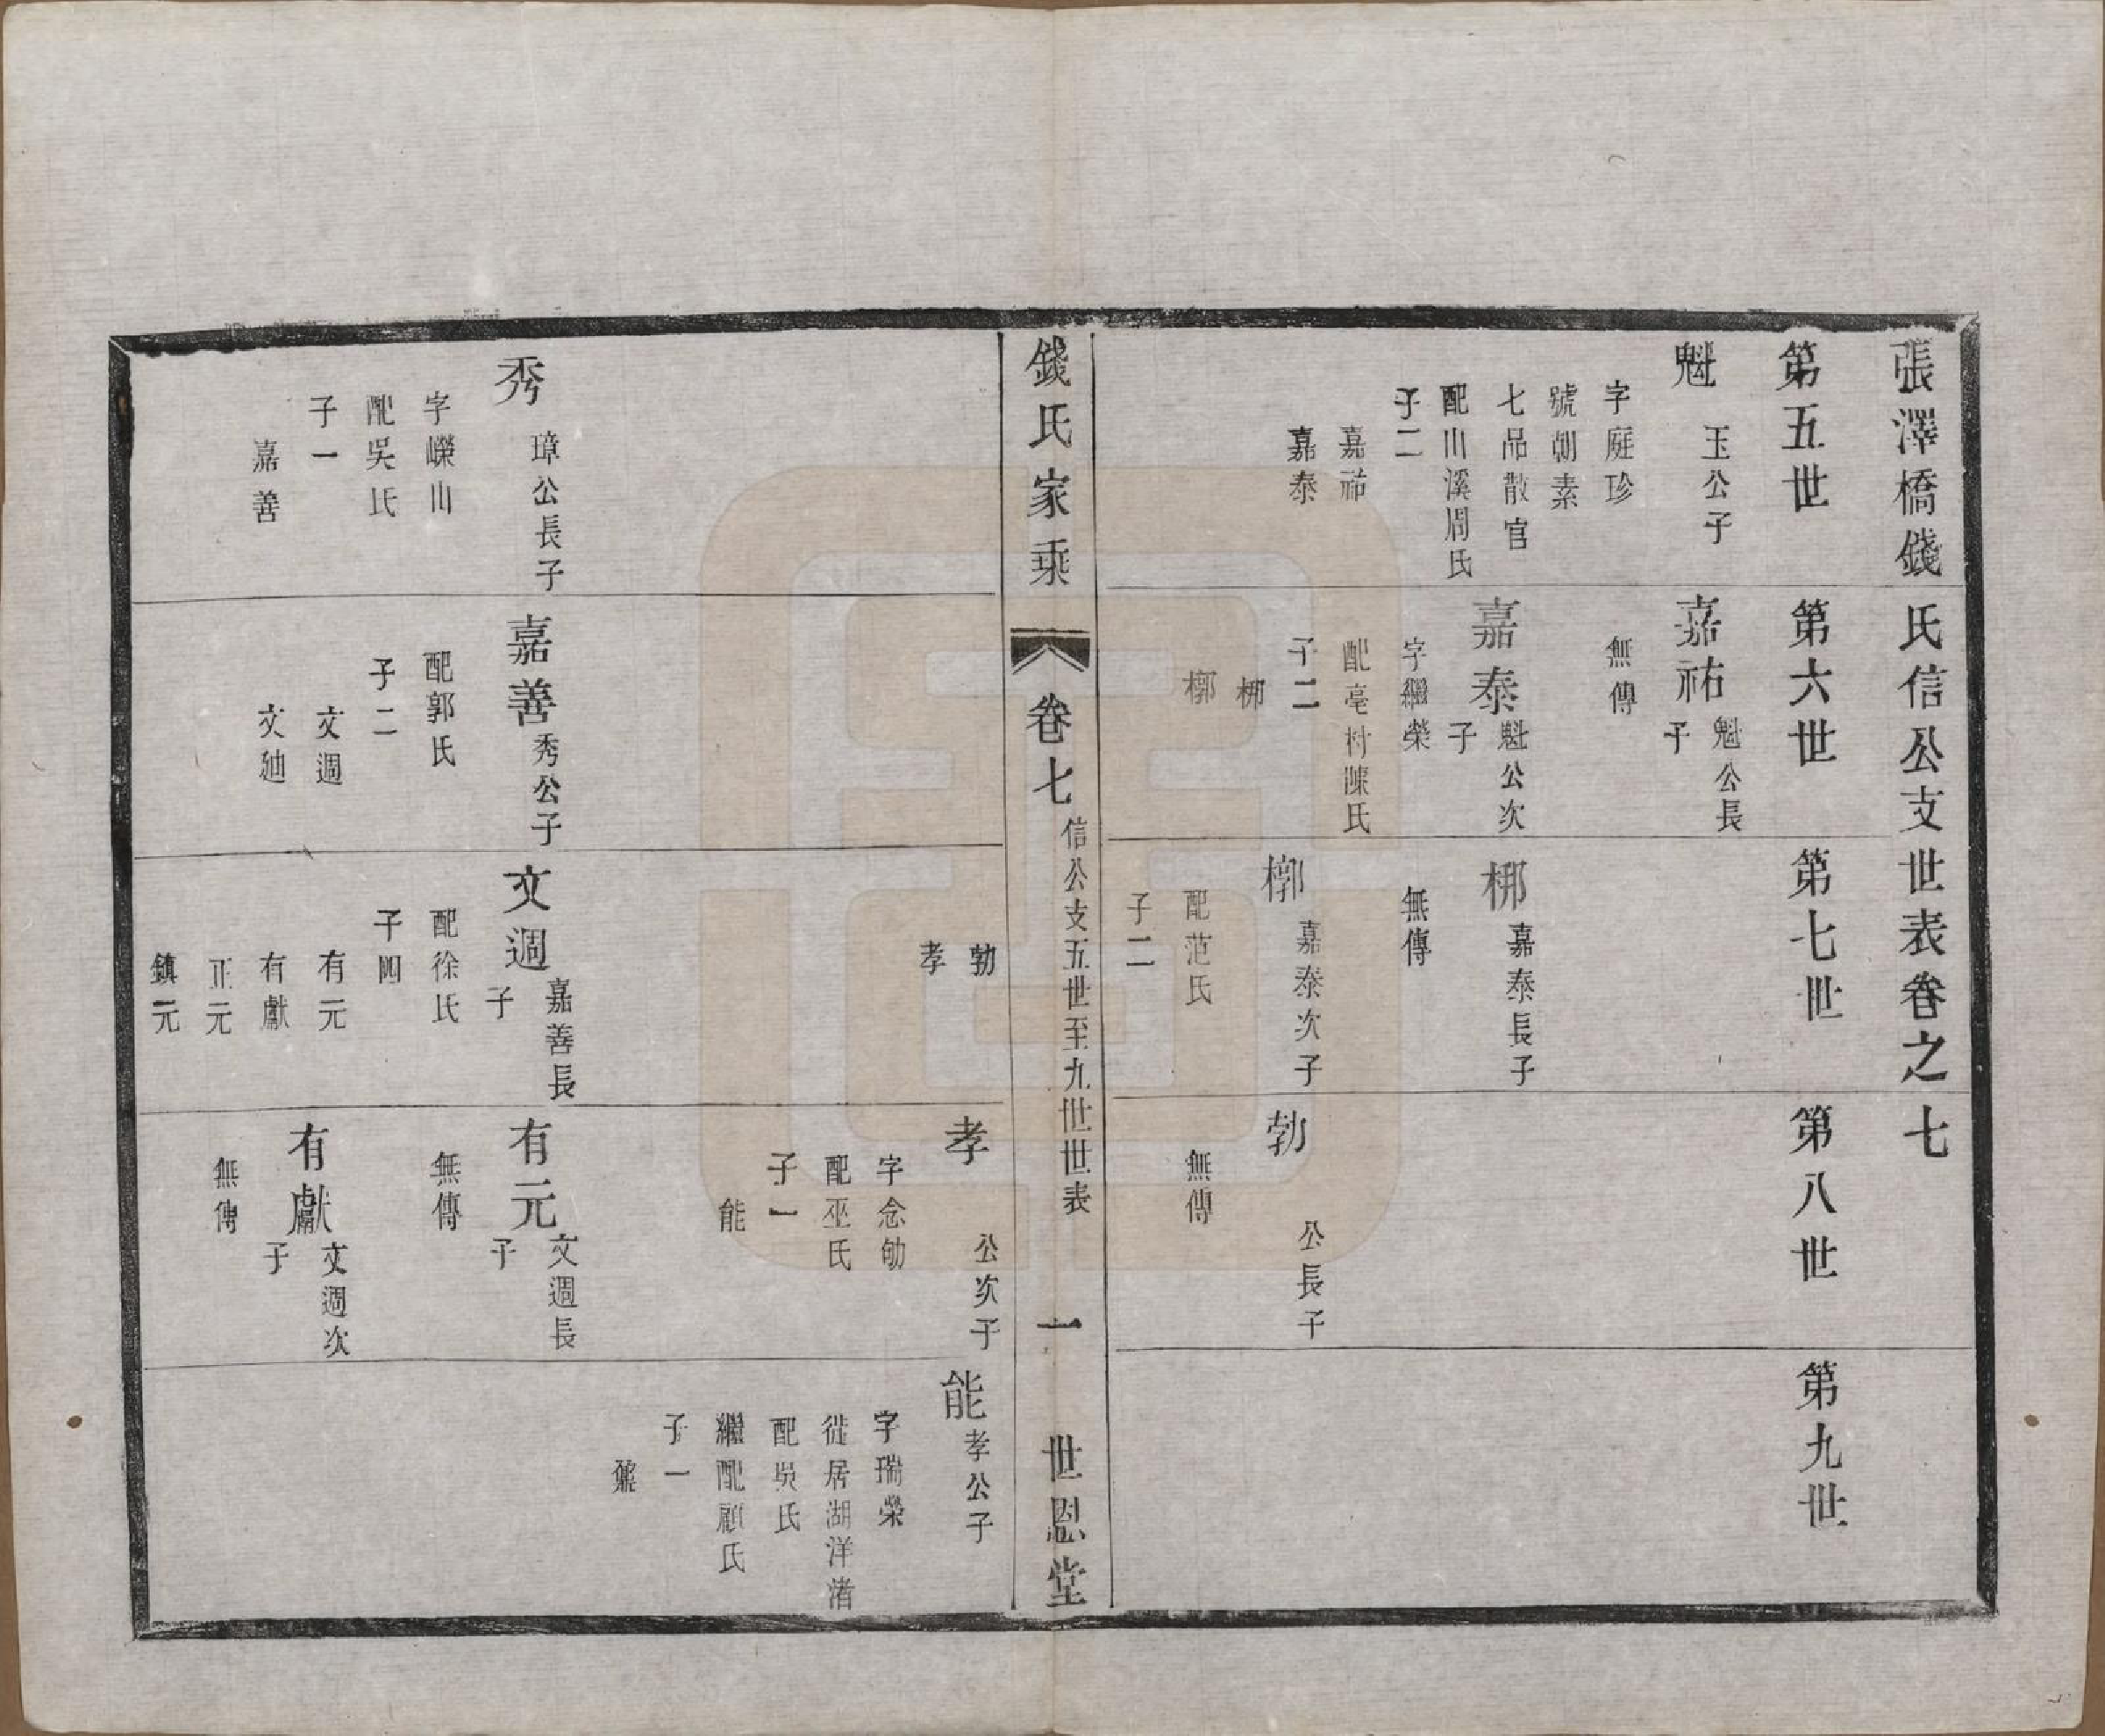 張澤橋錢氏信公支世表卷之七
第五世
第六世
第七世
第八世
第九世
魁
玉公子
字庭珍
號朝素
七品散官
配山溪周氏
子二
嘉祐
嘉泰
嘉祐
魁公長
子
無傳
嘉泰
魁公次
子
字繼榮
配亳村陳氏
子二
梆
槨
梆
嘉泰長子
無傳
槨
嘉泰次子
配范氏
子二
勃
孝
勃
公長子
無傳
錢氏家乘
卷七
信公支五世至九世世表
一
世恩堂
孝
公次子
字念劬
配巫氏
子一
能
能
孝公子
字瑞榮
徙居湖洋渚
配吳氏
繼配顧氏
子一
秀
璋公長子
字嶸山
配吳氏
子一
嘉善
嘉善
秀公子
配郭氏
子二
文週
文迪
文週
嘉善長
子
配徐氏
子四
有元
有獻
正元
鎮元
有元
文週長
子
無傳
有獻
文週次
子
無傳